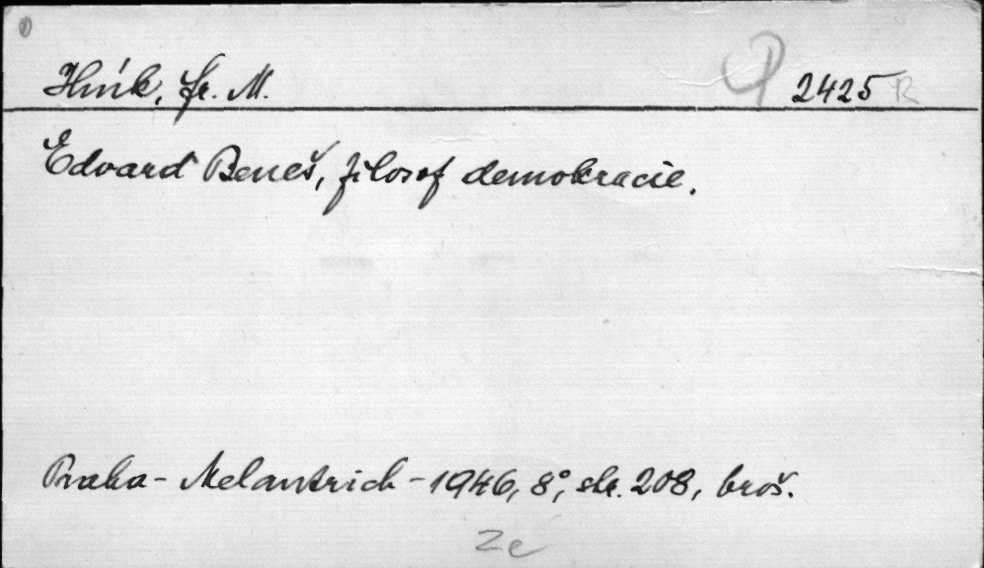 Hník, Fr. M.
2425 R
Edvard Beneš, filosof demokracie.
Praha - Melantrich - 1946, 8°, str. 208, brož.
Ze